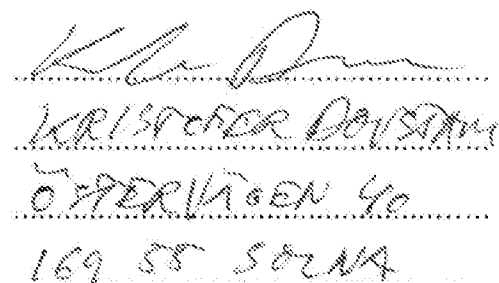 KRISTOFER
ÖSTERVÄGEN 40
169 55 SOLNA